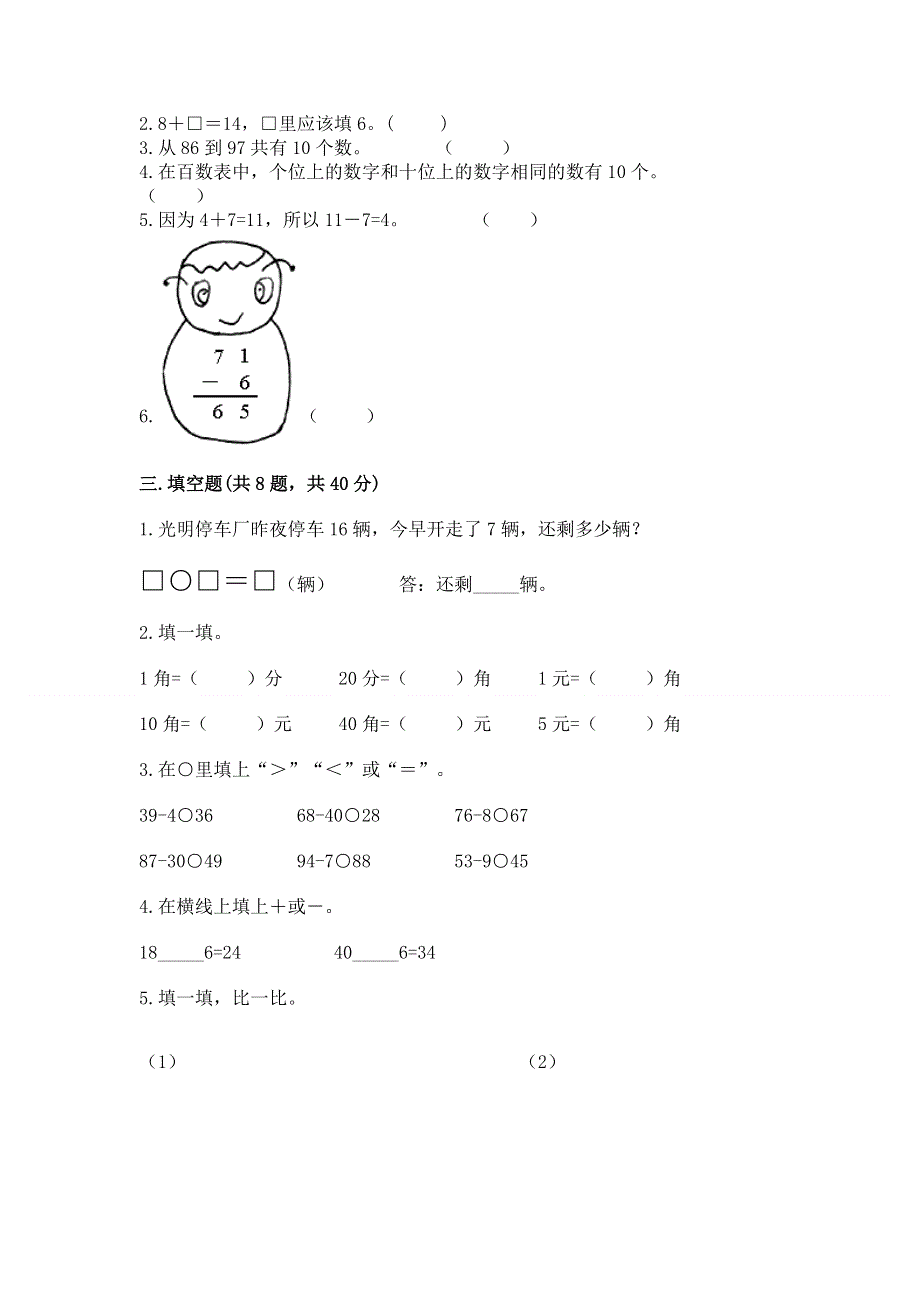 2.8＋□＝14，□里应该填6。(　　)
3.从86到97共有10个数。　　　（　　）
4.在百数表中，个位上的数字和十位上的数字相同的数有10个。
（　　）
5.因为4＋7=11，所以11－7=4。　　　（　　）
7 1
－ 6
6 5
6.　　　（　　）
三.填空题(共8题，共40分)
1.光明停车厂昨夜停车16辆，今早开走了7辆，还剩多少辆？
□○□＝□（辆）　　　答：还剩_____辆。
2.填一填。
1角=（　　）分　　20分=（　　）角　　1元=（　　）角
10角=（　　）元　　40角=（　　）元　　5元=（　　）角
3.在○里填上“＞”“＜”或“＝”。
39-4○36　　　68-40○28　　　76-8○67
87-30○49　　　94-7○88　　　53-9○45
4.在横线上填上＋或－。
18_____6=24　　　40_____6=34
5.填一填，比一比。
（1）　　　　　　（2）